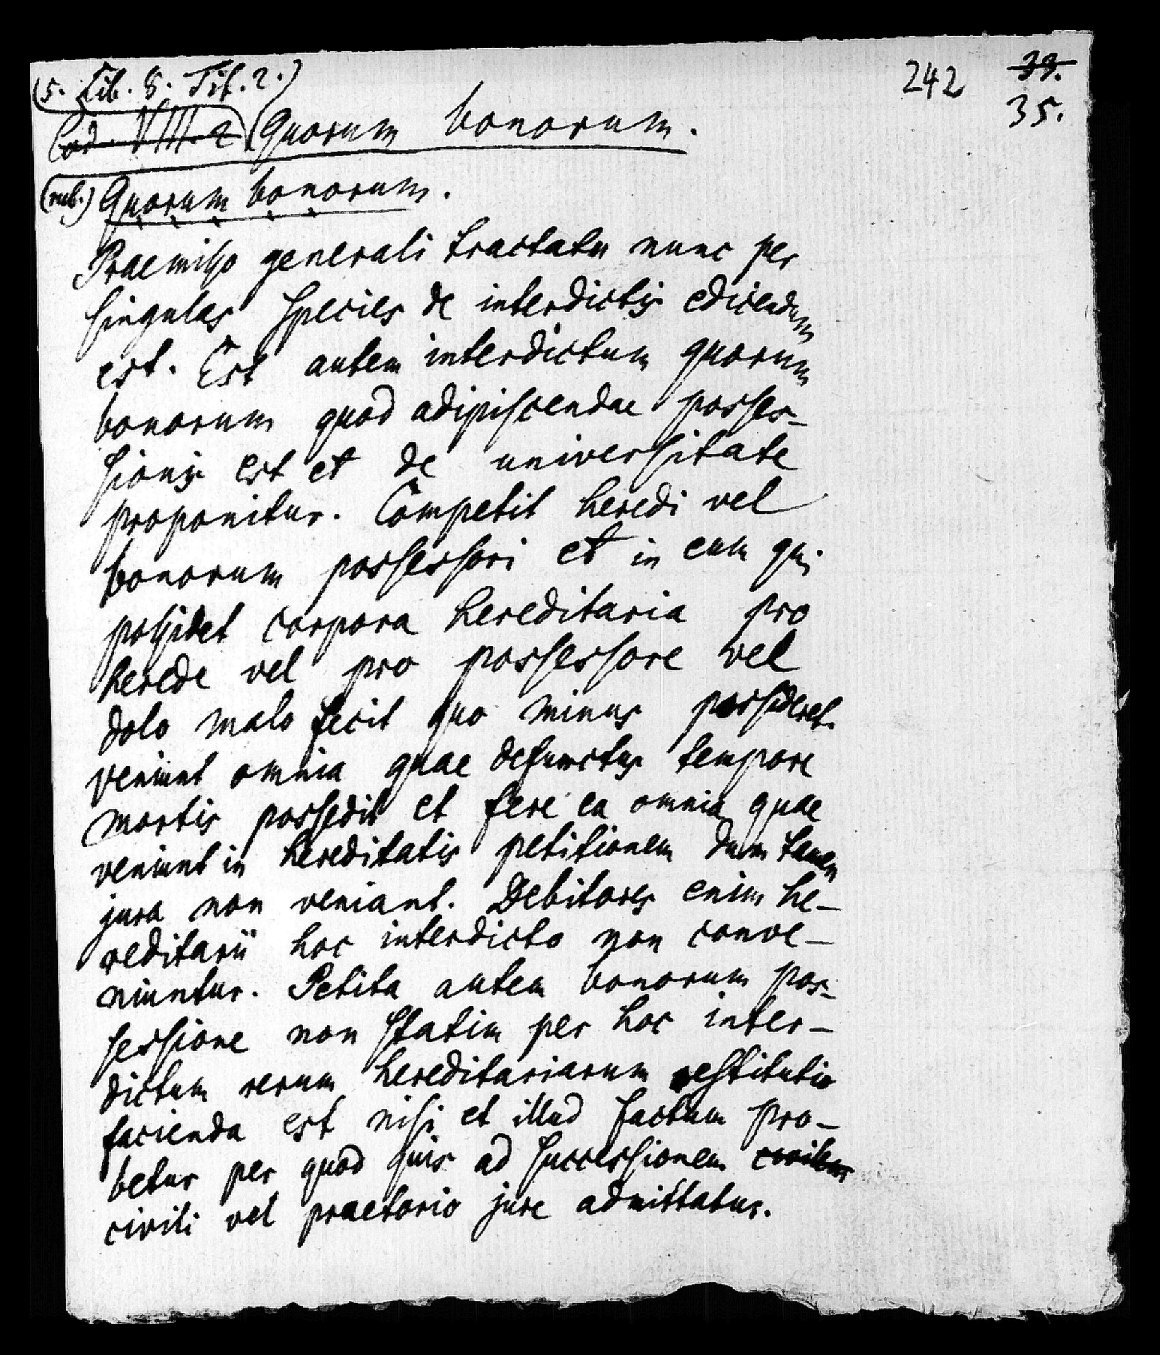 (5. Lib. 8. Tit. 2.)
242 39.
35.
Cod. VIII. 2 (Quorum bonorum.
(rub.) Quorum bonorum.
Praemisso generali tractatu nunc per
singulas species de interdictis edicendum
est. Est autem interdictum quorum
bonorum quod adipiscendae posses-
sionis est et de universitate
proponitur. Competit heredi vel
bonorum possessori et in eum qui
possidet corpora hereditaria pro
herede vel pro possessore vel
dolo malo fecit quo minus possideret
veniunt omnia quae defunctus tempore
mortis possedit et fere ea omnia quae
veniunt in hereditatis petitionem dum tamen
jura non veniant. Debitores enim he-
reditarii hoc interdicto non conve-
niuntur. Petita autem bonorum pos-
sessione non statim per hoc inter-
dictum rerum hereditariarum restitutio
facienda est nisi et illud factum pro-
betur per quod quis ad successionem
civili vel praetorio jure admittatur.